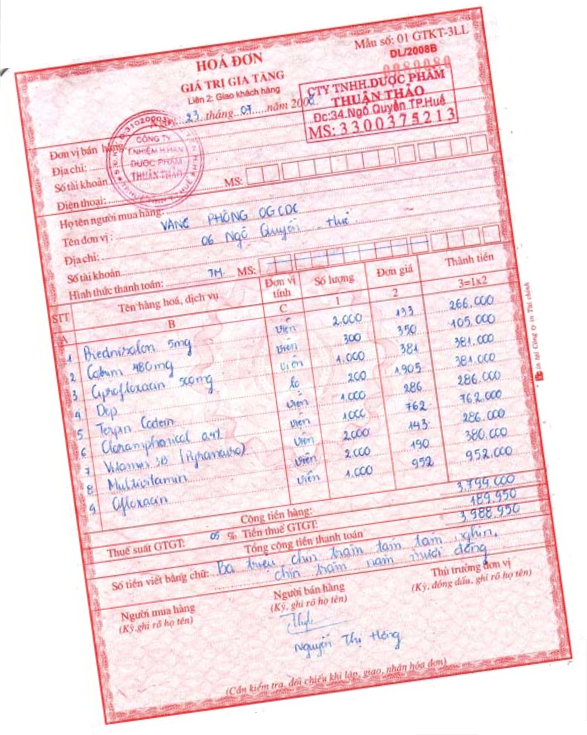 HOÁ ĐƠN
GIÁ TRỊ GIA TĂNG
Liên 2: Giao khách hàng
Mẫu số: 01 GTKT-3LL
DL/2008B
23 tháng 07 năm 2008
CTY TNHH.DƯỢC PHẨM
THUẬN THẢO
Đc:34.Ngô Quyền TP.Huế
MS: 3300375213
CÔNG TY
TNHH
DƯỢC PHẨM
THUẬN THẢO
Đơn vị bán hàng
Địa chỉ:
Số tài khoản
Điện thoại: MS:
Họ tên người mua hàng:
Tên đơn vị: VĂNG PHÒNG OGCDC
Địa chỉ: 06 Ngô Quyền Huế
Số tài khoản
Hình thức thanh toán: TM MS:
STT Tên hàng hoá, dịch vụ Đơn vị tính Số lượng Đơn giá Thành tiền
A B C 1 2 3=1x2
1 Prednisolon 5mg viên 2.000 133 266.000
2 Cotrim 480mg viên 300 350 105.000
3 Ciprofloxacin 500mg viên 1.000 381 381.000
4 Dep lọ 200 1905 381.000
5 Terpin Codein viên 1.000 286 286.000
6 Cloramphenical viên 1.000 762 762.000
7 Vitamin 3B viên 2.000 143 286.000
8 Multivitamin viên 2.000 190 380.000
9 Ofloxacin viên 1.000 952 952.000
Cộng tiền hàng: 3.799.000
Thuế suất GTGT: 05 % Tiền thuế GTGT: 189.950
Tổng cộng tiền thanh toán 3.988.950
Số tiền viết bằng chữ: Ba triệu, chín trăm tám tám nghìn,
chín trăm năm mươi đồng
Người mua hàng Người bán hàng Thủ trưởng đơn vị
(Ký,ghi rõ họ tên) (Ký, ghi rõ họ tên) (Ký, đóng dấu, ghi rõ họ tên)
Nguyễn Thị Hồng
(Cần kiểm tra, đối chiếu khi lập, giao, nhận hóa đơn)